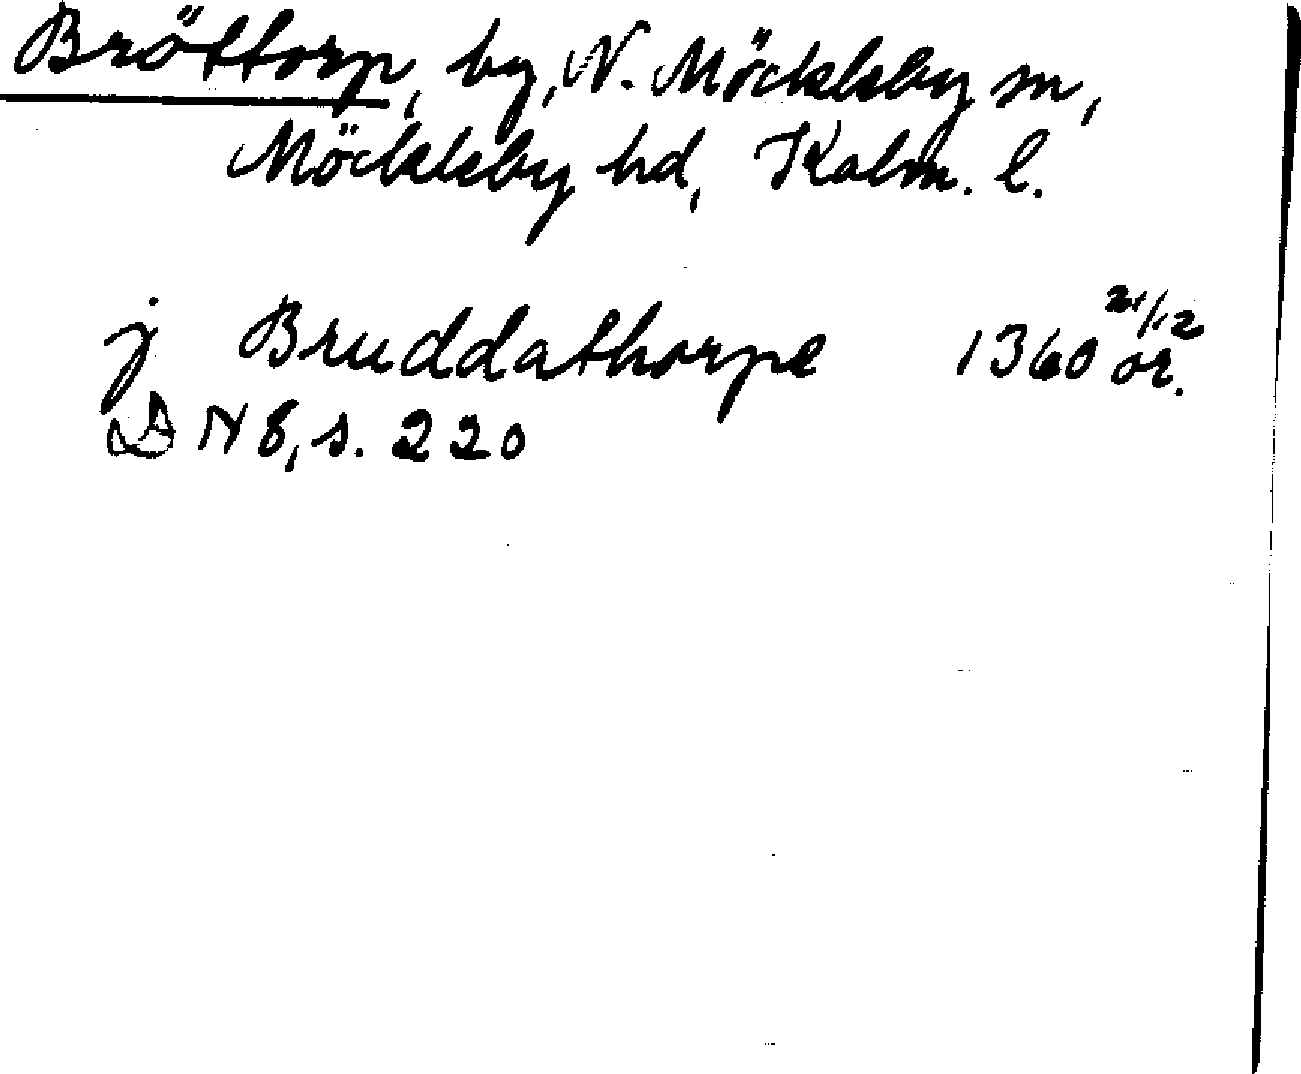 Bröttorp, by, N. Möckleby sn,
Möckleby hd, Kalm. l.
j Bruddathorpe 1360 21/12 or.
DN 8, s. 220